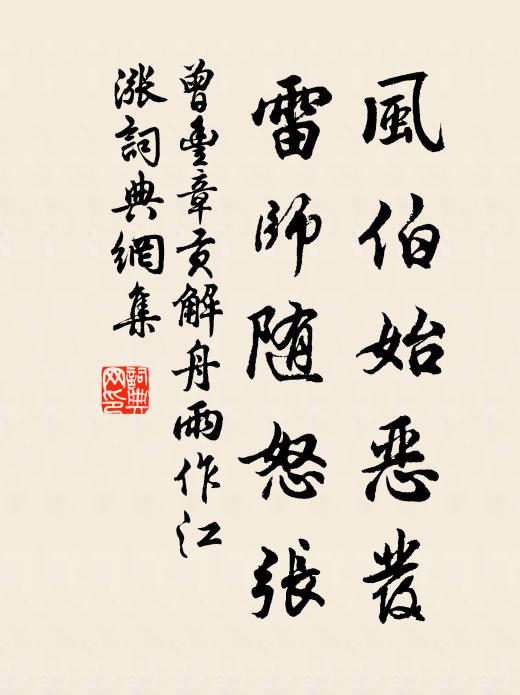 風伯始恶發
雷師随怒張
曾豐章贡解舟雨作江
漲詞典網集
詞典
网印